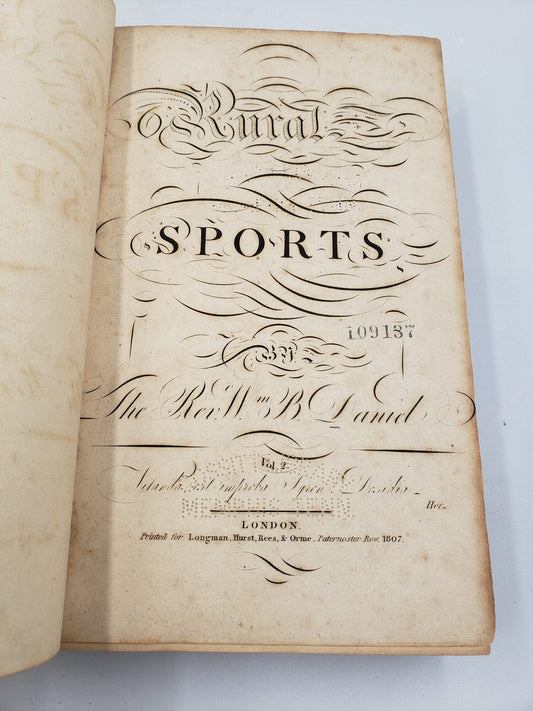 Rural
SPORTS
BY
109137
The Rev. Wm. B. Daniel
Vol. 2.
Vitanda est improba Syren Desidia
Hor.
LONDON.
Printed for Longman, Hurst, Rees, & Orme, Paternoster Row, 1807.